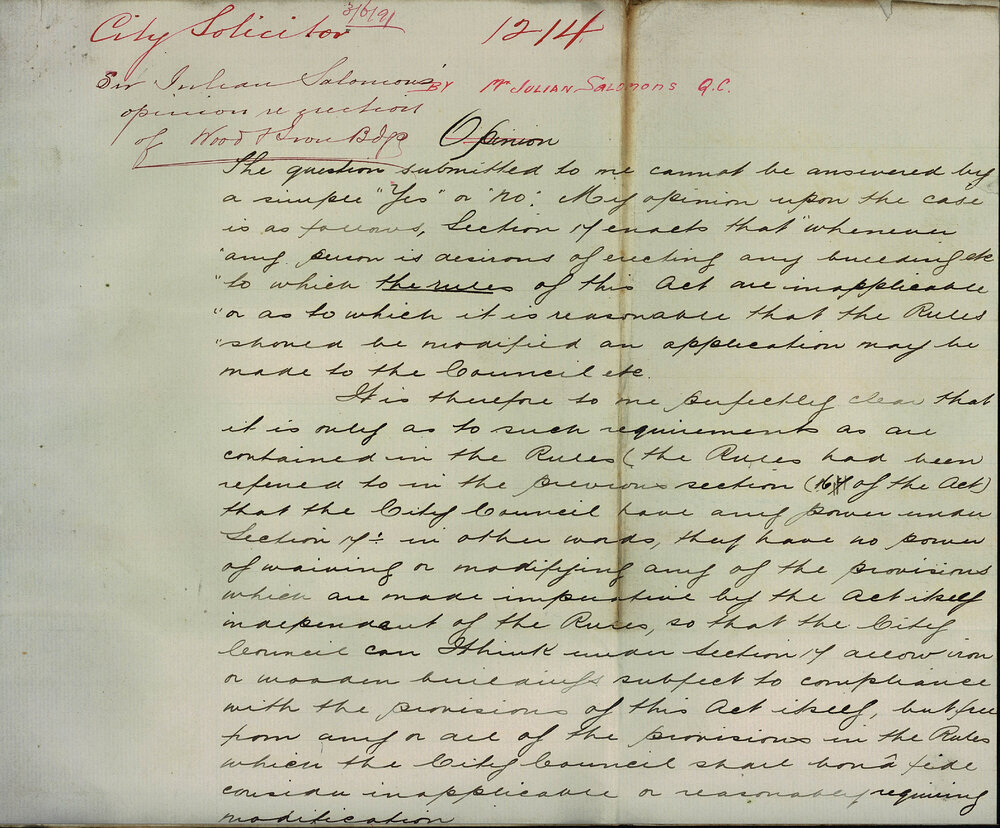 City Solicitor 3/6/91 1214
Sir Julian Salomons' BY Mr JULIAN SALOMONS Q.C.
opinion re erection
of Wood & Iron Bdgs
Opinion
The question submitted to me cannot be answered by
a simple "Yes" or "no". My opinion upon the case
is as follows, Section 17 enacts that "whenever
"any person is desirous of erecting any building etc
"to which the rules of this Act are inapplicable
"or as to which it is reasonable that the Rules
"should be modified an application may be
made to the Council etc.
It is therefore to me perfectly clear that
it is only as to such requirements as are
contained in the Rules (the Rules had been
referred to in the previous section (16 of the Act)
that the City Council have any power under
Section 17: in other words, they have no power
of waiving or modifying any of the provisions
which are made imperative by the Act itself
independent of the Rules, so that the City
Council can I think under section 17 allow iron
or wooden buildings subject to compliance
with the provisions of this Act itself, but free
from any or all of the provisions in the Rules
which the City Council shall bonâ fide
consider inapplicable or reasonably requiring
modification